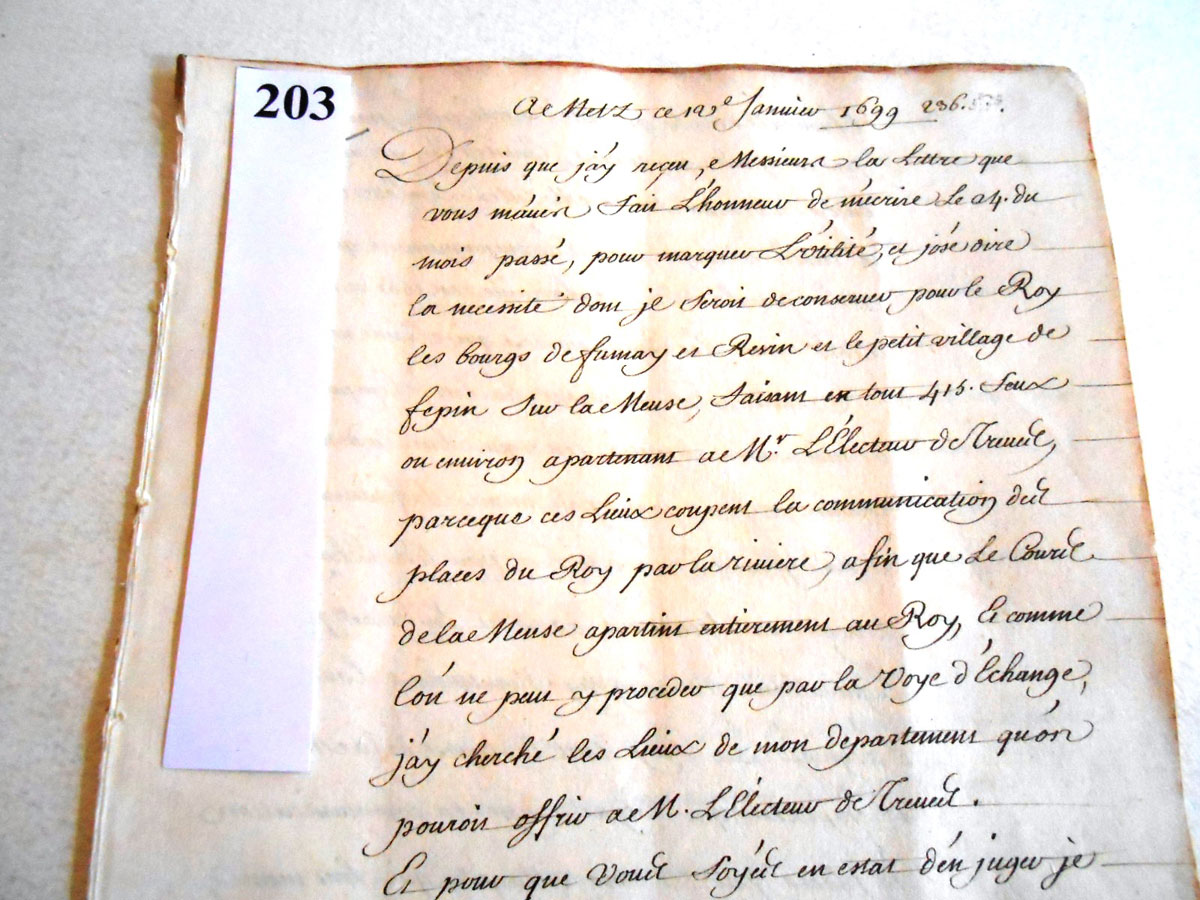 203
A Metz ce 12e Janvier 1699 236.
Depuis que j'ay reçeu, Messieurs la Lettre que
vous m'avés fait L'honneur de m'ecrire Le 24. du
mois passé, pour marquer L'utilité, et j'ose dire
la necessité dont je serois de conserver pour le Roy
les bourgs de fumay et Revin et le petit village de
fepin sur la Meuse, faisant en tout 415. feux
ou environ apartenant a Mr. L'Électeur de Treves,
parceque ces Lieux coupent la communication des
places du Roy par la riviere, afin que Le Cours
de la Meuse apartint entierement au Roy, Et comme
l'on ne peut y proceder que par la Voye d'Echange,
j'ay cherché les Lieux de mon departement qu'on
pouroit offrir a M. L'Électeur de Treves.
Et pour que Vous soyés en estat d'en juger je